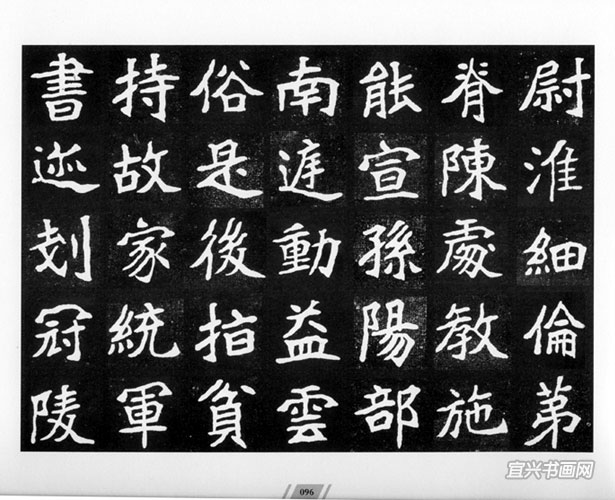 尉淮細倫苐
脊陳處教施
能宣孫陽部
南庭動益雲
俗是後指貧
持故家統軍
書迹刻冠陵
096
宜兴书画网